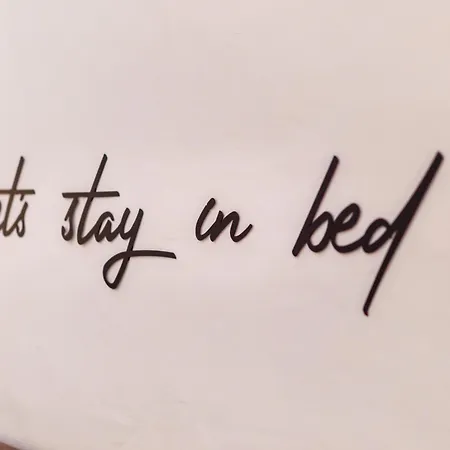 et's stay in bed